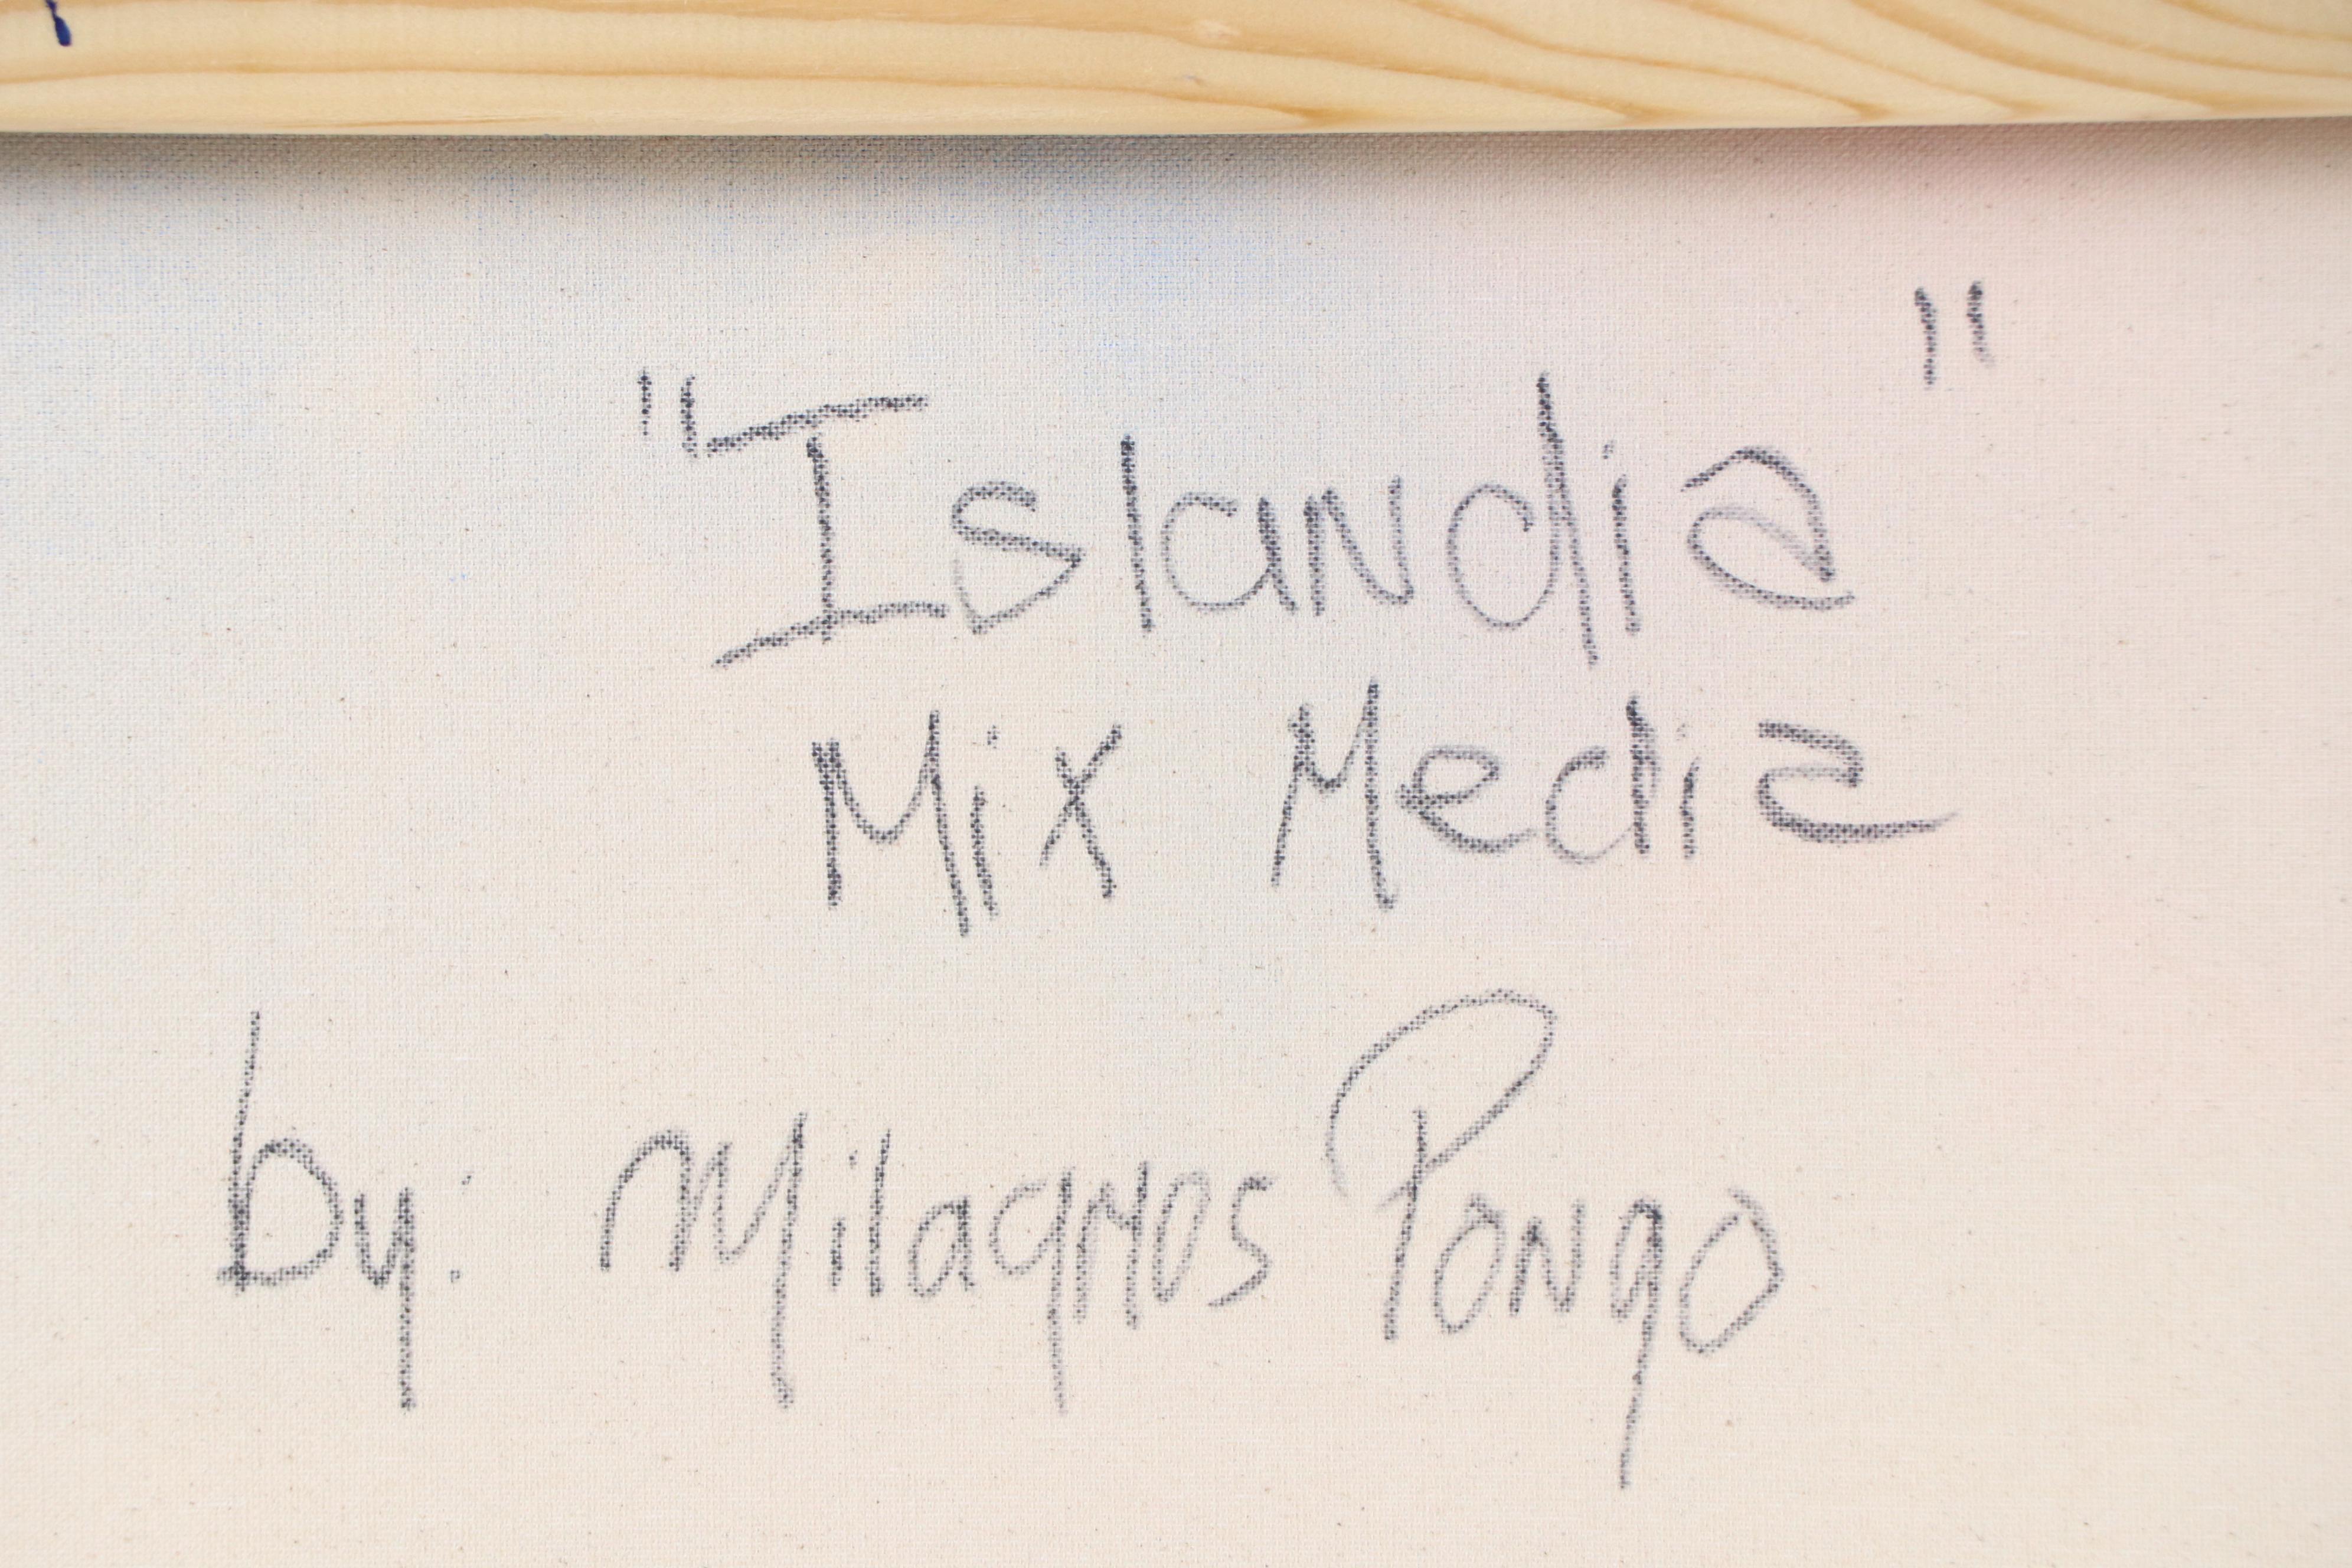 "Islandia"
Mix Media
by: Milagros Pongo